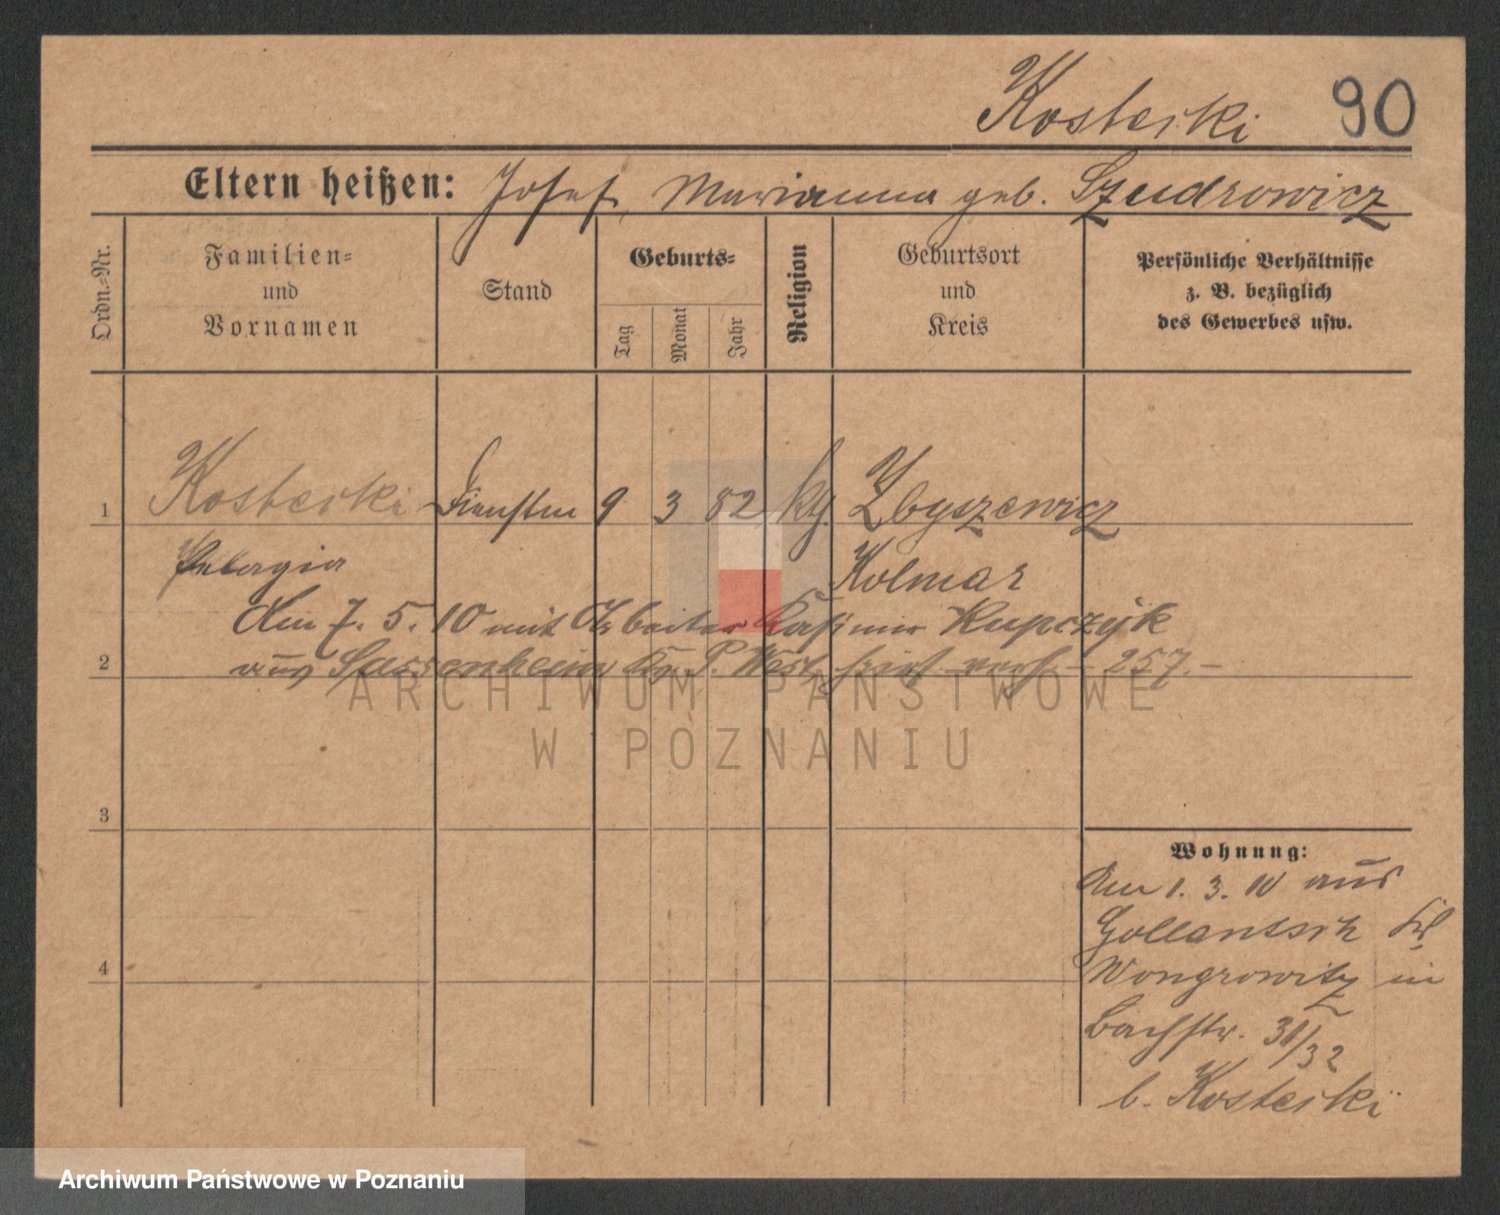 Kosterki 90
Eltern heißen: Josef, Marianna geb. Szudrowicz
Ordn.-Nr.
Familien-
und
Vornamen
Stand
Geburts-
Tag
Monat
Jahr
Religion
Geburtsort
und
Kreis
Persönliche Verhältnisse
z. B. bezüglich
des Gewerbes usw.
1 Kosterki 9 3 82 Zbyszewicz
Pelagia Kolmar
Am 7. 5. 10 mit Arbeiter Kasimir Kupczyk
2 aus Sassenheim P. West 257.
ARCHIWUM PAŃSTWOWE
W POZNANIU
3
Wohnung:
Am 1. 3. 10 aus
Gollantsch
4 Wongrowitz in
Bachstr. 31/32
b. Kosterki
Archiwum Państwowe w Poznaniu